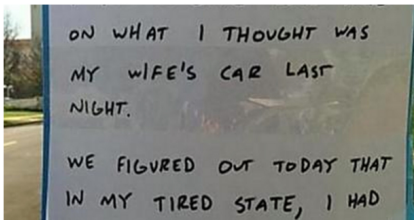 ON WHAT I THOUGHT WAS
MY WIFE'S CAR LAST
NIGHT.
WE FIGURED OUT TODAY THAT
IN MY TIRED STATE, I HAD